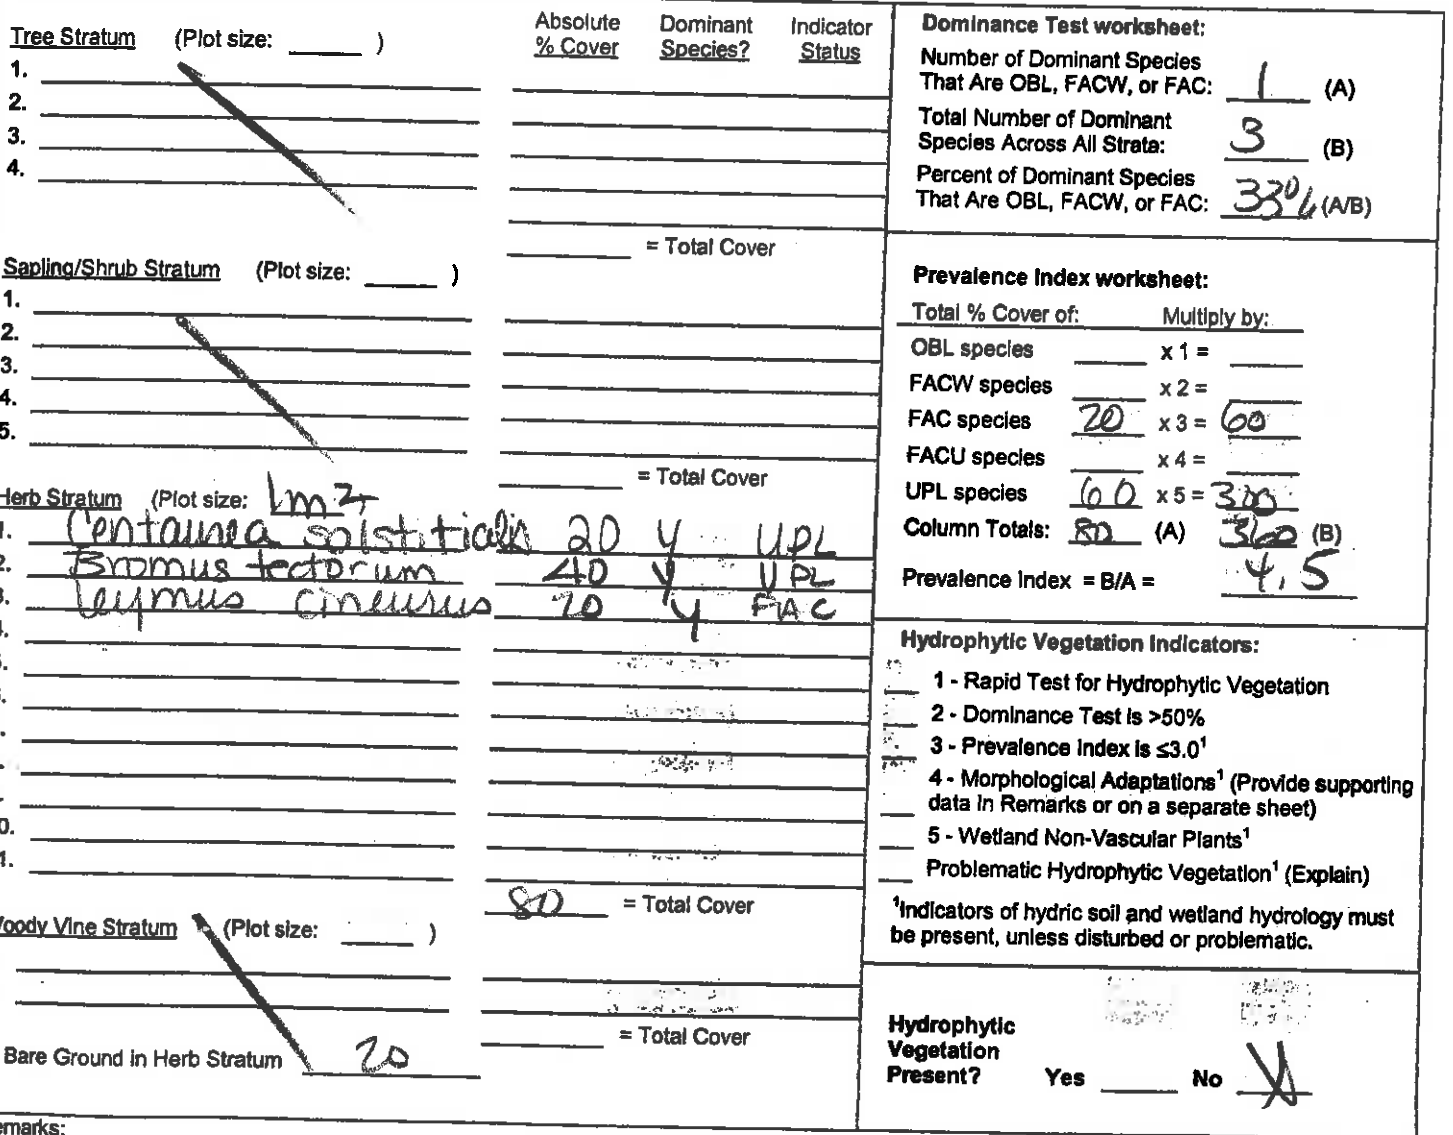 Absolute Dominant Indicator
Tree Stratum (Plot size: ______ ) % Cover Species? Status
1.
2.
3.
4.
= Total Cover
Sapling/Shrub Stratum (Plot size: ______ )
1.
2.
3.
4.
5.
= Total Cover
Herb Stratum (Plot size: 1m2 )
1. Centaurea solstitialis 20 Y UPL
2. Bromus tectorum 40 Y UPL
3. Leymus cinerus 20 Y FAC
80 = Total Cover
Woody Vine Stratum (Plot size: ______ )
= Total Cover
Bare Ground in Herb Stratum 20
Remarks:
Dominance Test worksheet:
Number of Dominant Species
That Are OBL, FACW, or FAC: 1 (A)
Total Number of Dominant
Species Across All Strata: 3 (B)
Percent of Dominant Species
That Are OBL, FACW, or FAC: 33% (A/B)
Prevalence Index worksheet:
Total % Cover of: Multiply by:
OBL species ______ x 1 = ______
FACW species ______ x 2 = ______
FAC species 20 x 3 = 60
FACU species ______ x 4 = ______
UPL species 60 x 5 = 300
Column Totals: 80 (A) 360 (B)
Prevalence Index = B/A = 4.5
Hydrophytic Vegetation Indicators:
___ 1 - Rapid Test for Hydrophytic Vegetation
___ 2 - Dominance Test is >50%
___ 3 - Prevalence Index is ≤3.0¹
___ 4 - Morphological Adaptations¹ (Provide supporting
data in Remarks or on a separate sheet)
___ 5 - Wetland Non-Vascular Plants¹
___ Problematic Hydrophytic Vegetation¹ (Explain)
¹Indicators of hydric soil and wetland hydrology must
be present, unless disturbed or problematic.
Hydrophytic
Vegetation
Present? Yes ______ No X